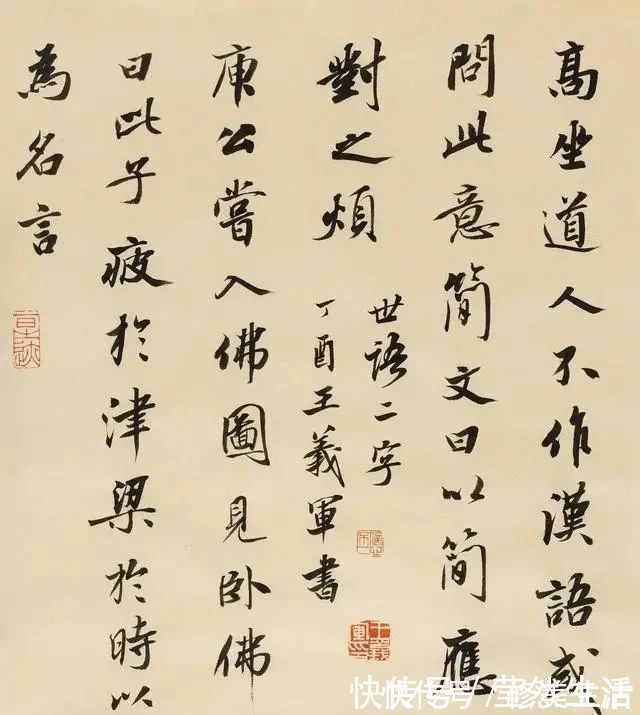 高坐道人不作漢語或
問此意簡文曰以簡應
對之煩
世語二字
丁酉王義軍書
庾公嘗入佛圖見卧佛
曰此子疲於津梁於時以
為名言
快传号/生活